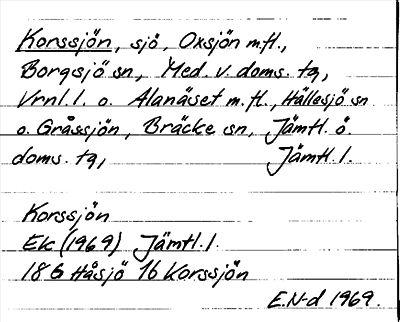 Korssjön, sjö, Oxsjön m.fl.,
Borgsjö sn, Med. v. doms. tg,
Vrnl. l. o. Alanäset m.fl., Hällesjö sn
o. Gråssjön, Bräcke sn, Jämtl. ö.
doms. tg, Jämtl. l.
Korssjön
Ek (1969) Jämtl. l.
18 G Håsjö 1b Korssjön
E.N-d 1969.